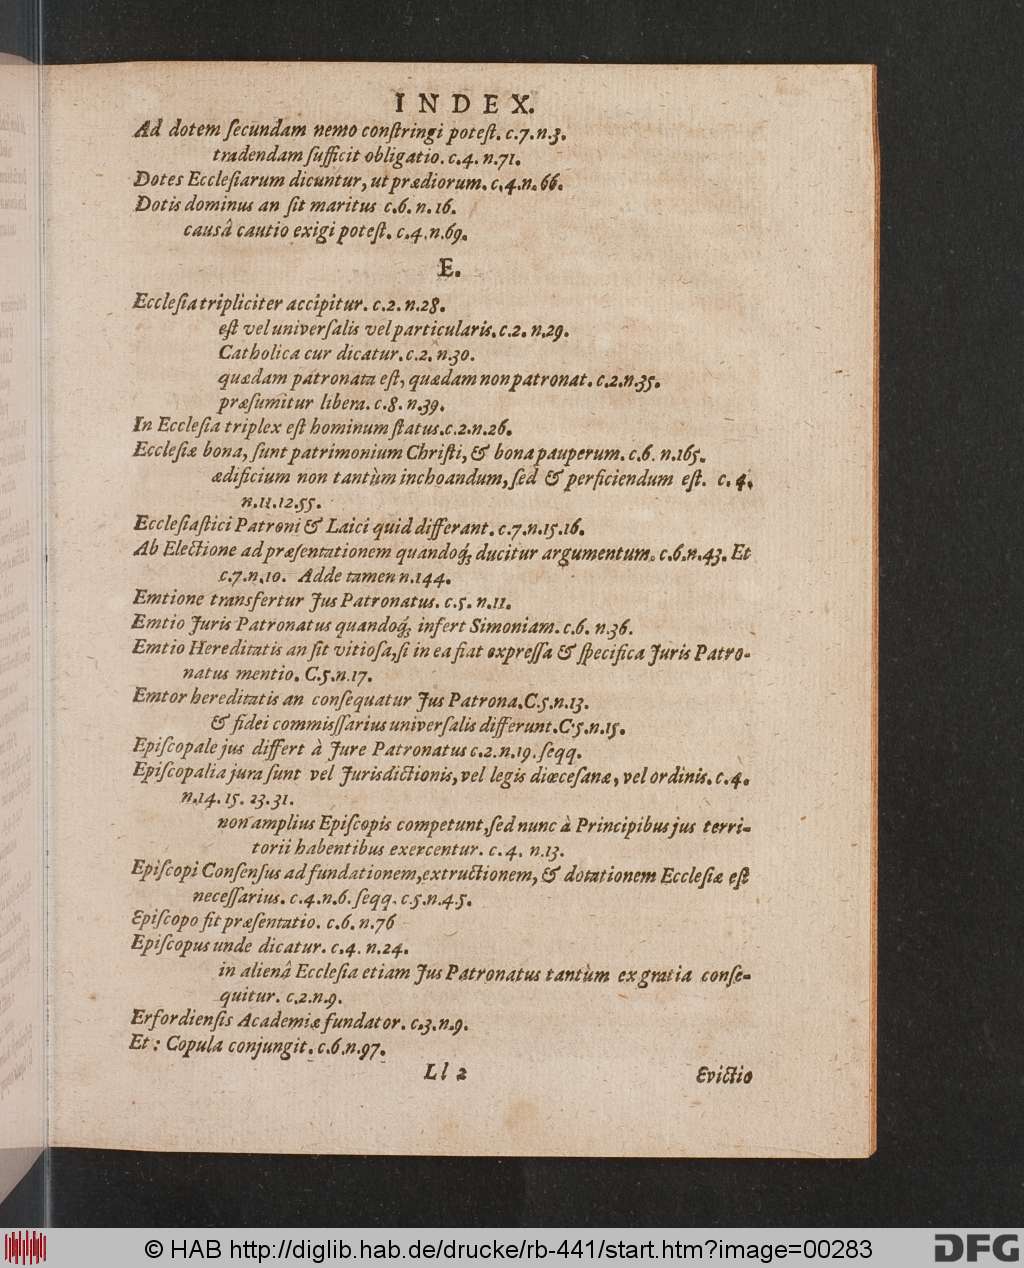 INDEX.
Ad dotem ſecundam nemo conſtringi poteſt. c.7.n.3.
tradendam ſufficit obligatio. c.4. n.71.
Dotes Eccleſiarum dicuntur, ut prædiorum. c.4.n.66.
Dotis dominus an ſit maritus c.6. n.16.
causâ cautio exigi poteſt. c.4.n.69.
E.
Eccleſia tripliciter accipitur. c.2. n.28.
eſt vel univerſalis vel particularis. c.2. n.29.
Catholica cur dicatur. c.2. n.30.
quædam patronata eſt, quædam non patronat. c.2.n.35.
præſumitur libera. c.8. n.39.
In Eccleſia triplex eſt hominum ſtatus. c.2.n.26.
Eccleſiæ bona, ſunt patrimonium Chriſti, & bona pauperum. c.6. n.165.
ædificium non tantùm inchoandum, ſed & perficiendum eſt. c. 4.
n.11.12.55.
Eccleſiaſtici Patroni & Laici quid differant. c.7.n.15.16.
Ab Electione ad præſentationem quandoq́; ducitur argumentum. c.6.n.43. Et
c.7.n.10. Adde tamen n.144.
Emtione transfertur Jus Patronatus. c.5. n.11.
Emtio Juris Patronatus quandoq́; infert Simoniam. c.6. n.36.
Emtio Hereditatis an ſit vitioſa, ſi in ea fiat expreſſa & ſpecifica Juris Patro-
natus mentio. C.5.n.17.
Emtor hereditatis an conſequatur Jus Patrona. C.5.n.13.
& fidei commiſſarius univerſalis differunt. C.5.n.15.
Epiſcopale jus differt à Jure Patronatus c.2.n.19. ſeqq.
Epiſcopalia jura ſunt vel Jurisdictionis, vel legis diœceſanæ, vel ordinis. c.4.
n.14. 15. 23. 31.
non amplius Epiſcopis competunt, ſed nunc à Principibus jus terri-
torii habentibus exercentur. c.4. n.13.
Epiſcopi Conſenſus ad fundationem, extructionem, & dotationem Eccleſiæ eſt
neceſſarius. c.4.n.6. ſeqq. c.5.n.45.
Epiſcopo fit præſentatio. c.6. n.76
Epiſcopus unde dicatur. c.4. n.24.
in alienâ Eccleſia etiam Jus Patronatus tantùm ex gratia conſe-
quitur. c.2.n.9.
Erfordienſis Academiæ fundator. c.3.n.9.
Et: Copula conjungit. c.6.n.97.
Ll 2 Evictio
© HAB http://diglib.hab.de/drucke/rb-441/start.htm?image=00283
DFG